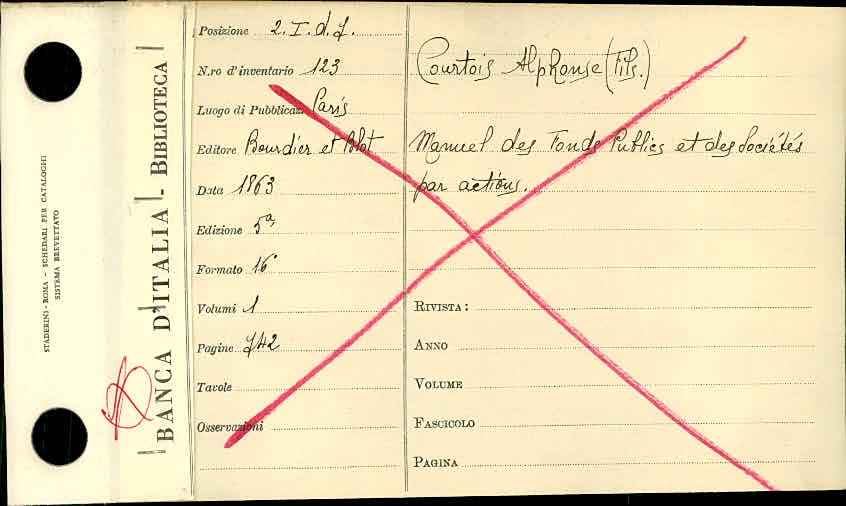 STADERINI - ROMA - SCHEDARI PER CATALOGHI
SISTEMA BREVETTATO
BANCA D'ITALIA - BIBLIOTECA
Posizione 2. I. d. f.
N.ro d'inventario 123
Luogo di Pubblicaz. Paris
Editore Bourdier et Blot
Data 1863
Edizione 5ª
Formato 16°
Volumi 1
Pagine 742
Tavole
Osservazioni
Courtois Alphonse (Fils.)
Manuel des Fonds Publics et des Sociétés
par actions.
RIVISTA:
ANNO
VOLUME
FASCICOLO
PAGINA